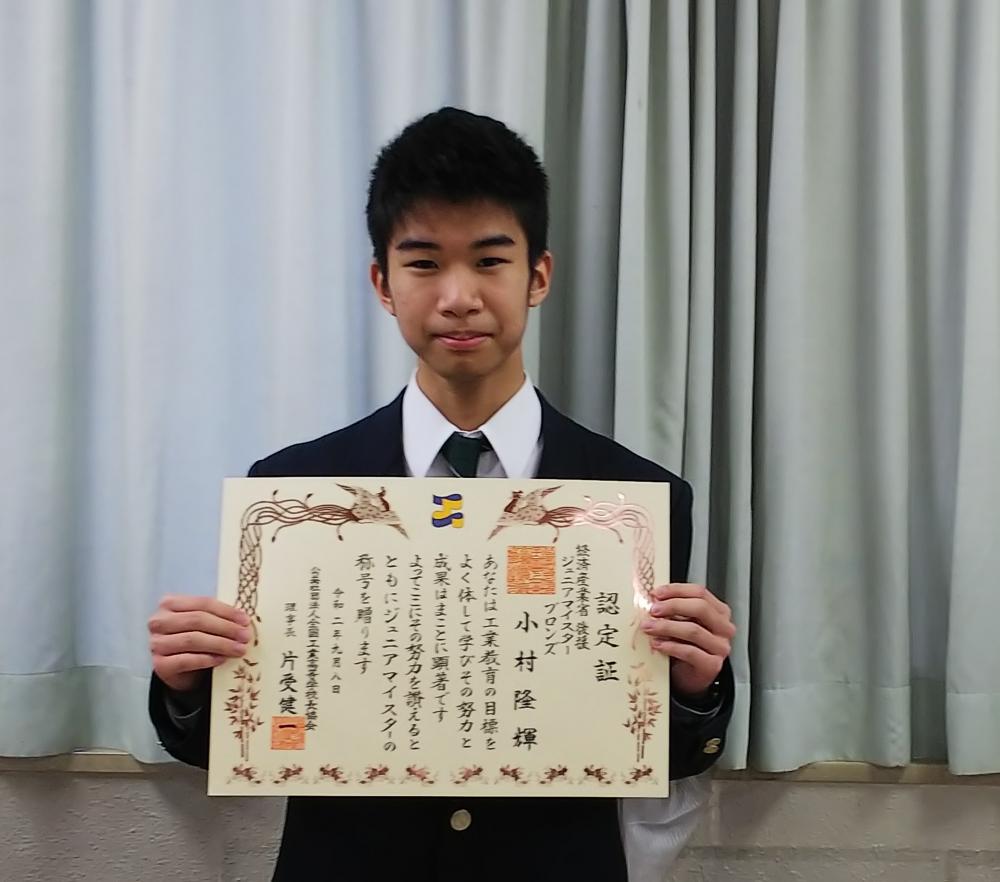 認定証
経済産業省 後援
ジュニアマイスター
ブロンズ
小村隆輝
あなたは工業教育の目標を
よく体して学びその努力と
成果はまことに顕著です
よってここにその努力を讃えると
ともにジュニアマイスターの
称号を贈ります
令和二年九月八日
公益社団法人全国工業高等学校長協会
理事長 片受健一